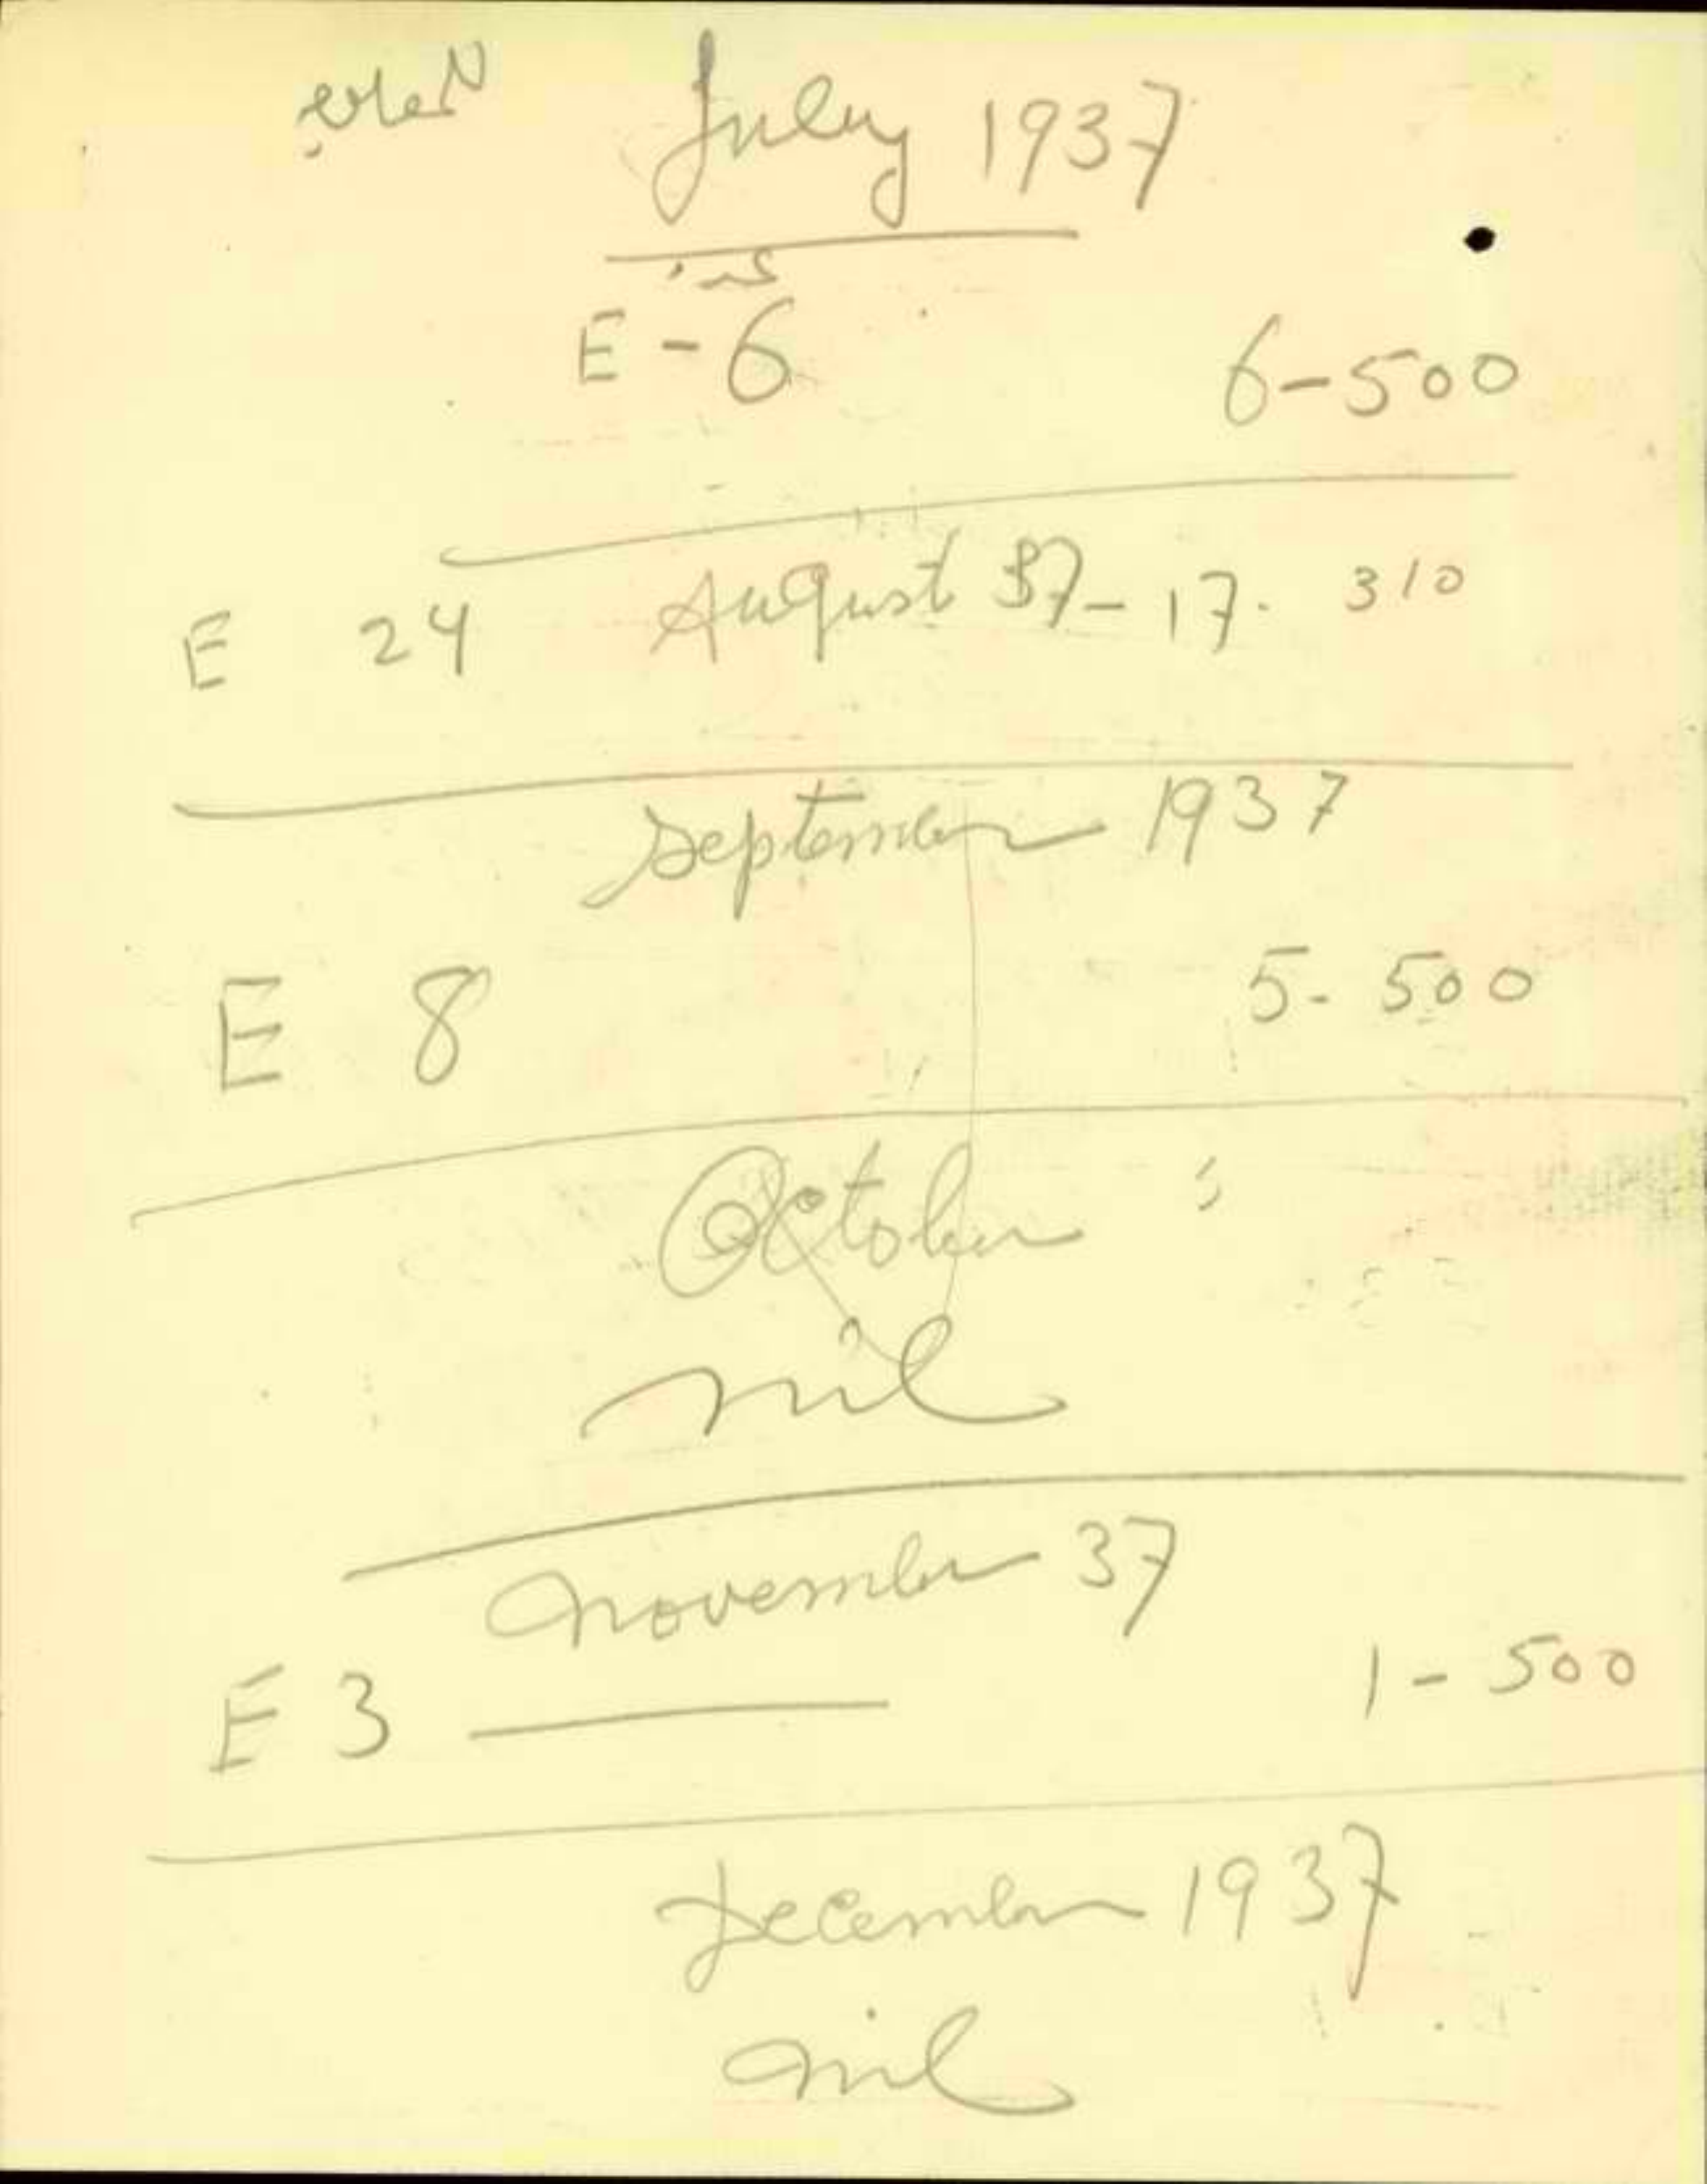 July 1937
E - 6 6-500
E 24 August 37- 17. 310
September 1937
E 8 5- 500
October
nil
November 37
E 3 1 - 500
December 1937
nil